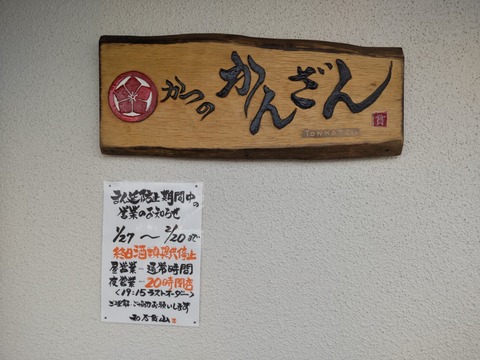 かつの
かんざん
TONKATSU
まん延防止期間中の
営業のお知らせ
1/27 ～ 2/20まで
終日酒類提供停止
昼営業－通常時間
夜営業－20時閉店
＜19:15ラストオーダー＞
ご理解・ご協力お願いします